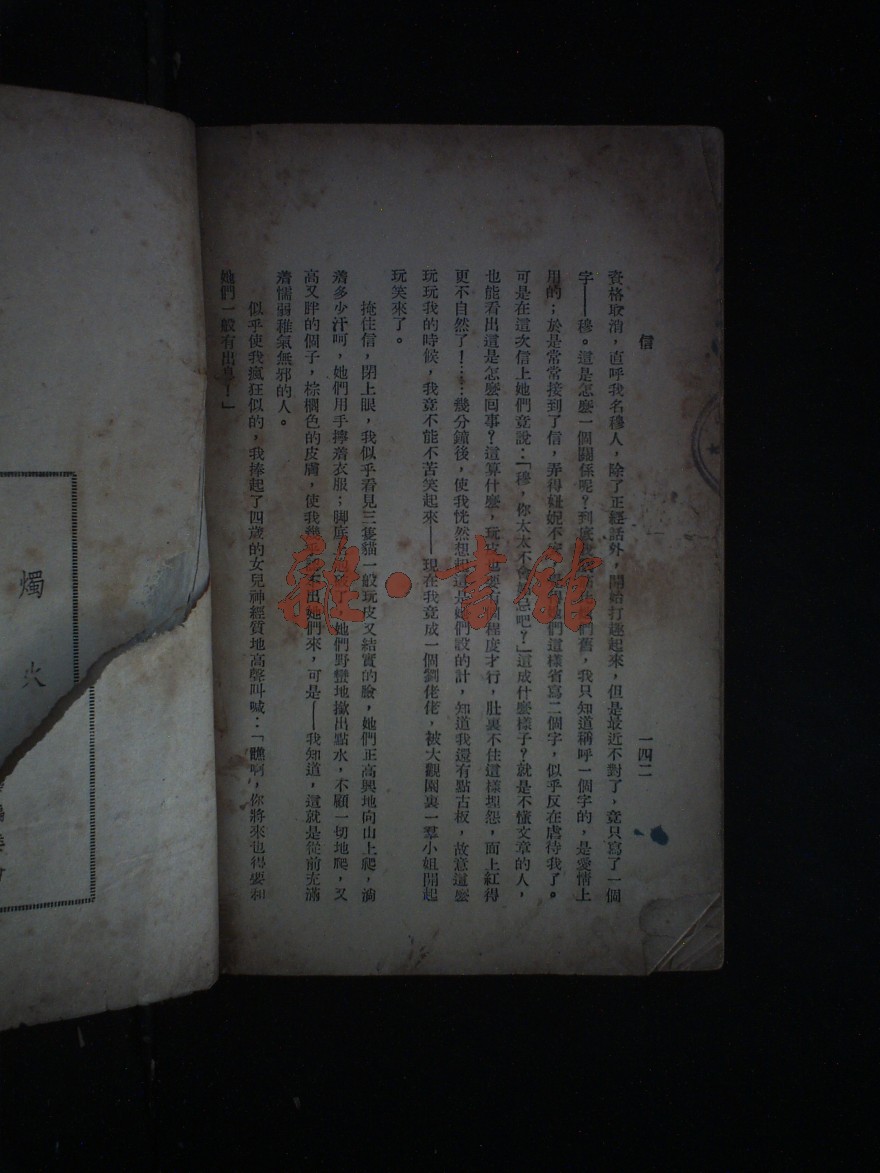 信
一四二
資格取消，直呼我名穆人，除了正經話外，開始打趣起來，但是最近不對了，竟只寫了一個
字——穆。這是怎麼一個關係呢？到底我，我只知道稱呼一個字的，是愛情上
用的；於是常常接到了信，弄得妞妮不們這樣省寫二個字，似乎反在虐待我了。
可是在這次信上她們竟說：「穆，你太太不會忌吧？」這成什麼樣子？就是不懂文章的人，
也能看出這是怎麼回事？這算什麼，玩皮也要有個程度才行，肚裏不住這樣埋怨，面上紅得
更不自然了！……幾分鐘後，使我恍然想起這是她們設的計，知道我還有點古板，故意這麼
玩玩我的時候，我竟不能不苦笑起來——現在我竟成一個劉佬佬，被大觀園裏一羣小姐開起
玩笑來了。
掩住信，閉上眼，我似乎看見三隻貓一般玩皮又結實的臉，她們正高興地向山上爬，淌
着多少汗呵，她們用手擰着衣服；脚底她們野蠻地撳出點水，不顧一切地爬，又
高又胖的個子，棕櫚色的皮膚，使我幾不出她們來，可是——我知道，這就是從前充滿
着懦弱稚氣無邪的人。
似乎使我瘋狂似的，我捧起了四歲的女兒神經質地高聲叫喊：「瞧啊，你將來也得要和
她們一般有出息！」
燭火
雜·書館